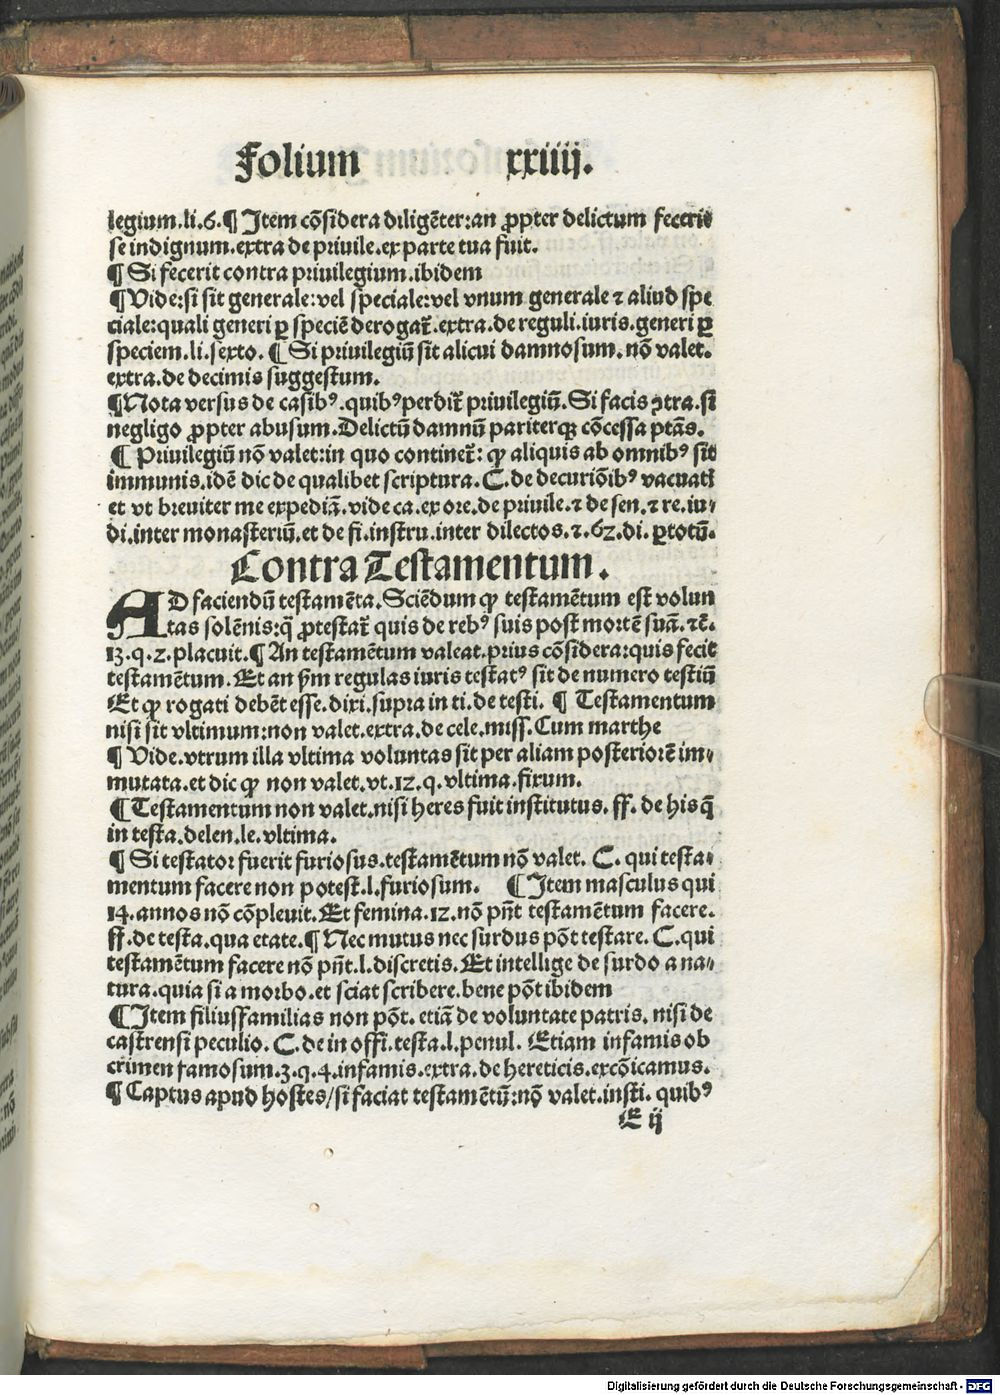 Folium xxiiij.
legium.li.6.¶ Item cōsidera diligēter:an ꝓpter delictum feceris
se indignum.extra de priuile.ex parte tua fuit.
¶ Si fecerit contra priuilegium.ibidem
¶ Vide:si sit generale:vel speciale:vel vnum generale ⁊ aliud spe
ciale:quali generi ꝑ speciē derogat̄.extra.de reguli.iuris.generi ꝑ
speciem.li.sexto. ¶ Si priuilegiū sit alicui damnosum.nō valet.
extra.de decimis suggestum.
¶ Nota versus de casibꝰ.quibꝰ perdit̄ priuilegiū.Si facis ꝯtra.si
negligo ꝓpter abusum.Delictū damnū pariterqꝫ cōcessa ptās.
¶ Priuilegiū nō valet:in quo continet̄: ꝙ aliquis ab omnibꝰ sit
immunis.idē dic de qualibet scriptura. C.de decuriōibꝰ vacuati
et vt breuiter me expediā.vide ca.ex ore.de priuile.⁊ de sen.⁊ re.iu-
di.inter monasteriū.et de fi.instru.inter dilectos.⁊.62.di. ꝑtotū.
Contra Testamentum.
AD faciendū testamēta.Sciēdum ꝙ testamētum est volun
tas solēnis:q̄ ꝓtestat̄ quis de rebꝰ suis post mortē suā.⁊ē.
13.q.2.placuit.¶ An testamētum valeat.prius cōsidera:quis fecit
testamētum.Et an ẜm regulas iuris testatꝰ sit de numero testiū
Et ꝙ rogati debēt esse.dixi.supra in ti.de testi. ¶ Testamentum
nisi sit vltimum:non valet.extra.de cele.miss.Cum marthe
¶ Vide.vtrum illa vltima voluntas sit per aliam posteriorē im-
mutata.et dic ꝙ non valet.vt.12.q.vltima.fixum.
¶ Testamentum non valet.nisi heres fuit institutus. ff. de his q̄
in testa.delen.le.vltima.
¶ Si testator fuerit furiosus.testamētum nō valet. C. qui testa-
mentum facere non potest.l.furiosum. ¶ Item masculus qui
14.annos nō cōpleuit.Et femina.12.nō pn̄t testamētum facere.
ff.de testa.qua etate.¶ Nec mutus nec surdus pōt testare. C.qui
testamētum facere nō pn̄t.l.discretis.Et intellige de surdo a na-
tura.quia si a morbo.et sciat scribere.bene pōt ibidem
¶ Item filiusfamilias non pōt. etiā de voluntate patris. nisi de
castrensi peculio. C.de in offi.testa.l.penul. Etiam infamis ob
crimen famosum.3.q.4.infamis.extra.de hereticis.excōicamus.
¶ Captus apud hostes/si faciat testamētū:nō valet.insti. quibꝰ
E ij
Digitalisierung gefördert durch die Deutsche Forschungsgemeinschaft - DFG